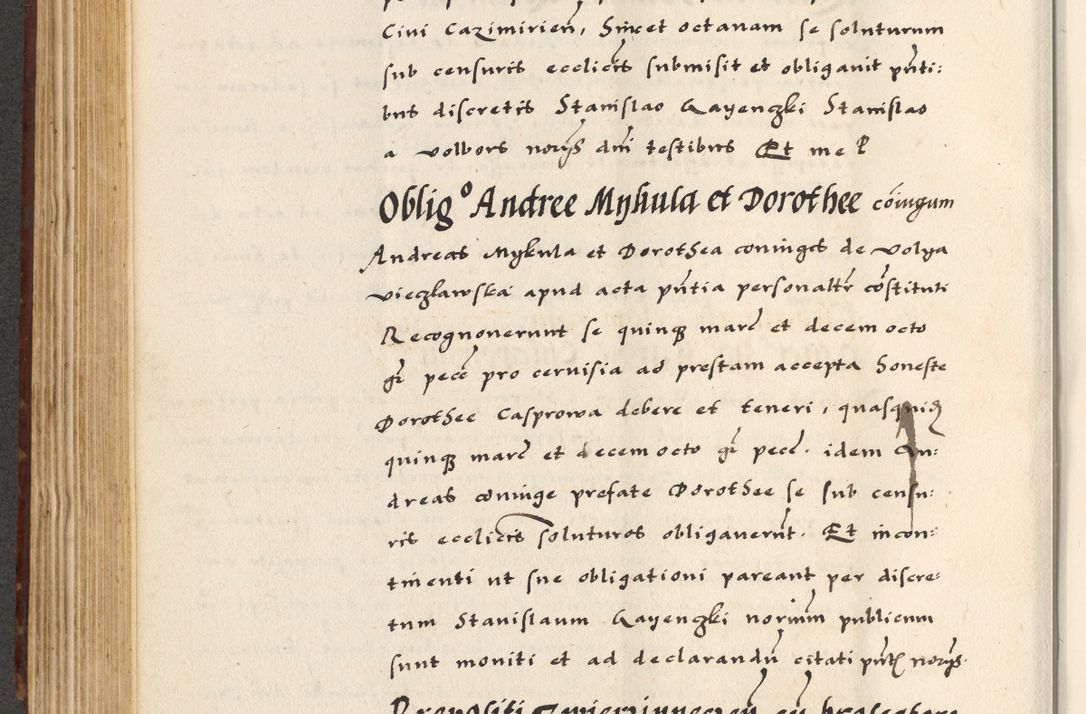 Civi Cazimirien, S met octavam se soluturum
sub censuris eccliĉis submisit et obligavit pñti:
bus discretis Stanislao Gayenczki Stanislao
a volbors norijs dñi testibus Et me P
Oblig° Andree Mykula et Dorothee cōiugum
Andreas Mykula et Dorothea coniuges de volya
vieczlawska apud acta pñtia personaltr cōstituti
Recognoverunt se quinqȝ marc et decem octo
gr pecc pro cervisia ad prestam accepta honeste
Dorothee Casprowa debere et teneri, quasquidȝ
quinqȝ marc et decem octo gr pecc. idem An:
dreas coniuge prefate Dorothee se sub censu:
ris eccliĉis soluturos obligaverūt. Et incon:
tinenti ut sue obligationi pareant per discre:
tum Stanislaum Gayenczki norium publicum
sunt moniti et ad declarandū citati pñtȝ norijs.